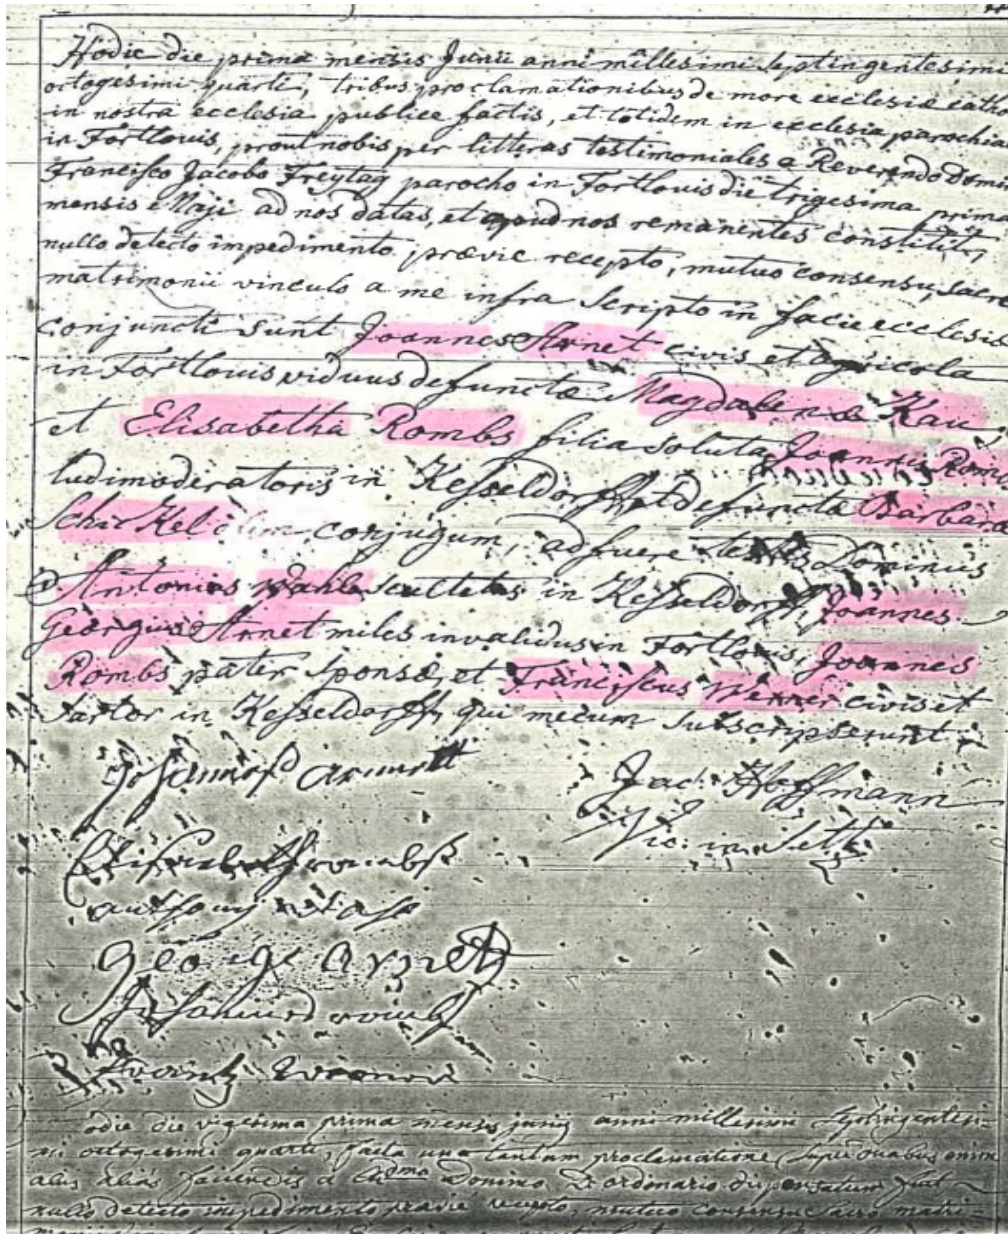 Hodie die prima mensis Junii anni millesimi septingentesimi
octogesimi quarti, tribus proclamationibus de more ecclesiæ cath
in nostra ecclesia publice factis, et totidem in ecclesia parochia
in Fortlouis, prout nobis per litteras testimoniales a Reverendo Domi
Francisco Jacobo Freytag parocho in Fortlouis die trigesima prima
mensis Maji ad nos datas, et apud nos remanentes constitit,
nullo detecto impedimento prævie recepto, mutuo consensu, sacro
matrimonii vinculo a me infra scripto in facie ecclesiæ
conjuncti sunt Joannes Arnet civis et agricola
in Fortlouis viduus defunctæ Magdalenæ Kau,
et Elisabetha Rombs filia soluta Joannis Romb
ludimoderatoris in Kesseldorff, et defunctæ Barbaræ
Schickel olim conjugum, adfuere testes Dominus
Antonius Wahl scultetus in Kesseldorff, Joannes
Georgius Arnet miles invalidus in Fortlouis, Joannes
Rombs pater sponsæ, et Franciscus Werner civis et
sartor in Kesseldorff, qui mecum subscripserunt.
Johannes arnett
Jac: Hoffmann
Vic: in Seltz
Elisabetha rombs
anthoni
George Arnet
Johannes rombs
Frantz
odie die vigesima prima mensis junij anni millesimi septingentesi-
mi octogesimi quarti, facta una tantum proclamatione super duabus enim
aliis alias faciendis a Domino D. ordinario dispensatum fuit
nullo detecto impedimento prævie recepto, mutuo consensu sacro matri-